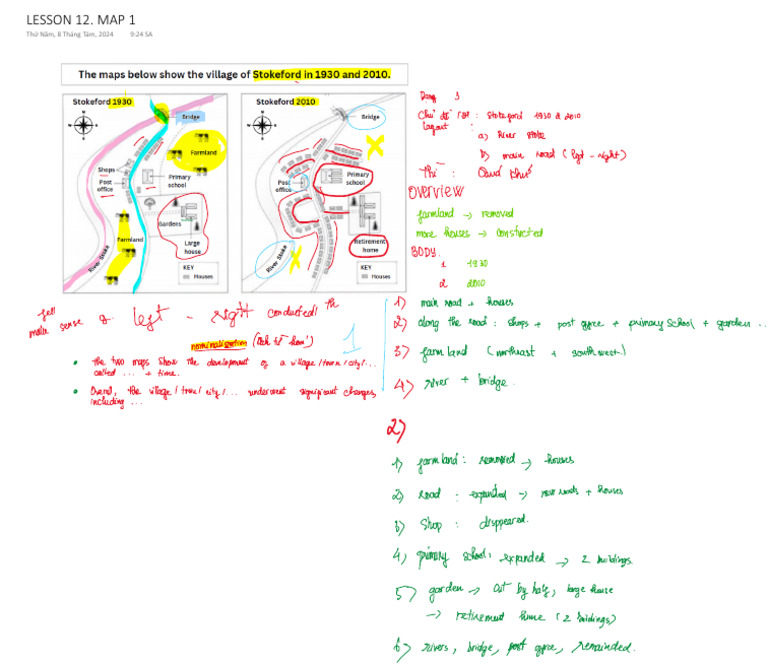 LESSON 12. MAP 1
Thứ Năm, 8 Tháng Tám, 2024 9:24 SA
The maps below show the village of Stokeford in 1930 and 2010.
Stokeford 1930
Bridge
Farmland
Shops
Post office
Primary school
Gardens
Farmland
Large house
River Stoke
KEY
Houses
Stokeford 2010
Bridge
Post office
Primary school
Retirement home
River Stoke
KEY
Houses
Dạng 1
Chủ đề : Stokeford 1930 & 2010
Layout :
a) River Stoke
b) main road (left - right)
Thì : Quá khứ
Overview
farmland → removed
more houses → constructed
BODY.
1 1930
2 2010
1) main road + houses
2) along the road : shops + post office + primary school + garden ...
3) farmland (northeast + southwest)
4) river + bridge.
make sense of left - right
nominalization
1
• the two maps show the development of a village / town / city / ...
called ... + time.
• Overall, the village / town / city / ... underwent significant changes,
including ...
2)
1) farmland : removed → houses
2) road : expanded → new roads + houses
3) shop : disppeared.
4) primary school : expanded → 2 buildings.
5) garden → cut by half, large house
→ retirement home (2 buildings)
6) rivers, bridge, post office, remainded.